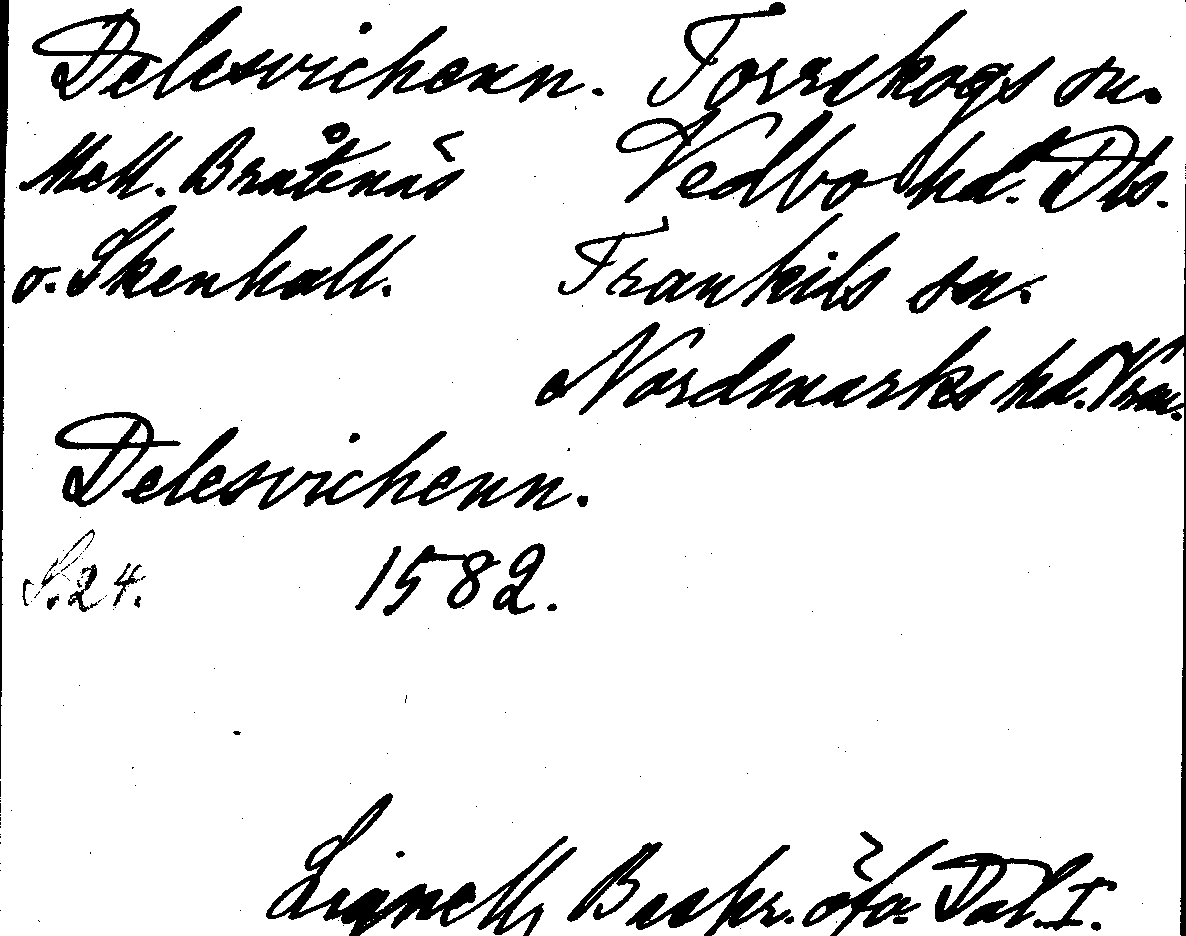 Delesvichenn. Torrskogs sn.
Mell. Bråtenäs Vedbo hd. Dls.
o. Skenhall. Trankils sn.
Nordmarks hd. Vrm.
Delesvichenn.
S. 24. 1582.
Lignell, Beskr. öfv. Dal. I.